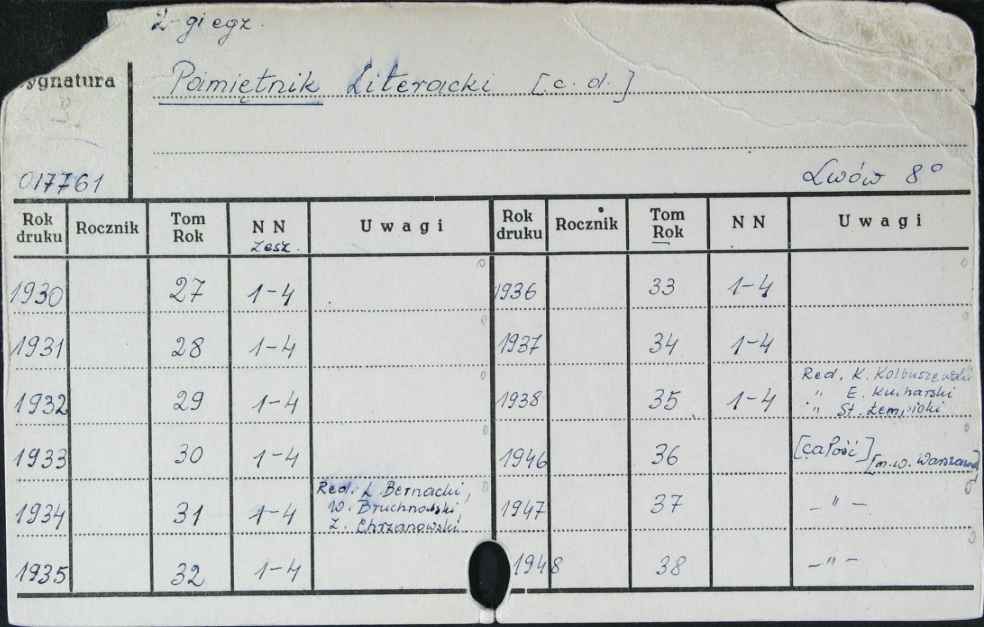 2-gi egz.
Sygnatura
Pamiętnik Literacki [c.d.]
017761
Lwów 8°
Rok druku Rocznik Tom Rok NN zesz. Uwagi Rok druku Rocznik Tom Rok NN Uwagi
1930 27 1-4 1936 33 1-4
1931 28 1-4 1937 34 1-4
1932 29 1-4 1938 35 1-4 Red. K. Kolbuszewski
" E. Kucharski
" St. Łempicki
1933 30 1-4 1946 36 [całość] [m.w. Warszawa]
1934 31 1-4 Red. L. Bernacki, 1947 37 - " -
W. Bruchnalski,
Z. Chrzanowski
1935 32 1-4 1948 38 - " -